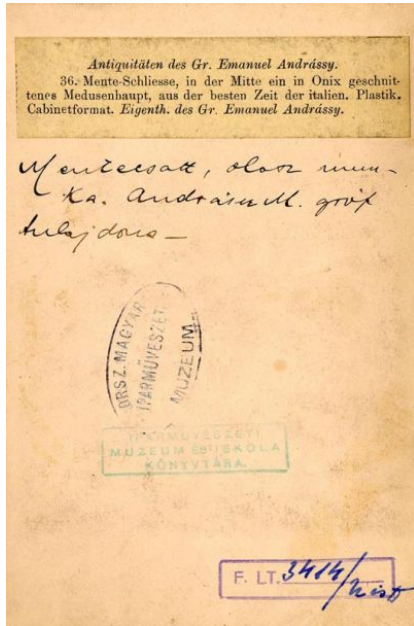 Antiquitäten des Gr. Emanuel Andrássy.
36. Mente-Schliesse, in der Mitte ein in Onix geschnit-
tenes Medusenhaupt, aus der besten Zeit der italien. Plastik.
Cabinetformat. Eigenth. des Gr. Emanuel Andrássy.
Mentecsatt, olasz mun-
ka. Andrássy M. gróf
tulajdona —
ORSZ. MAGYAR
IPARMŰVÉSZETI
MUZEUM
IPARMŰVÉSZETI
MUZEUM ÉS ISKOLA
KÖNYVTÁRA.
F. LT. 3414/